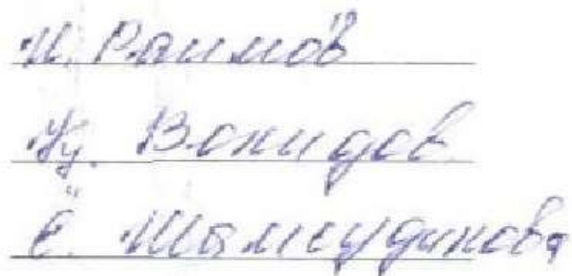 И. Раимов
Ҷу. Вохидов
Ё. Шамсудинова